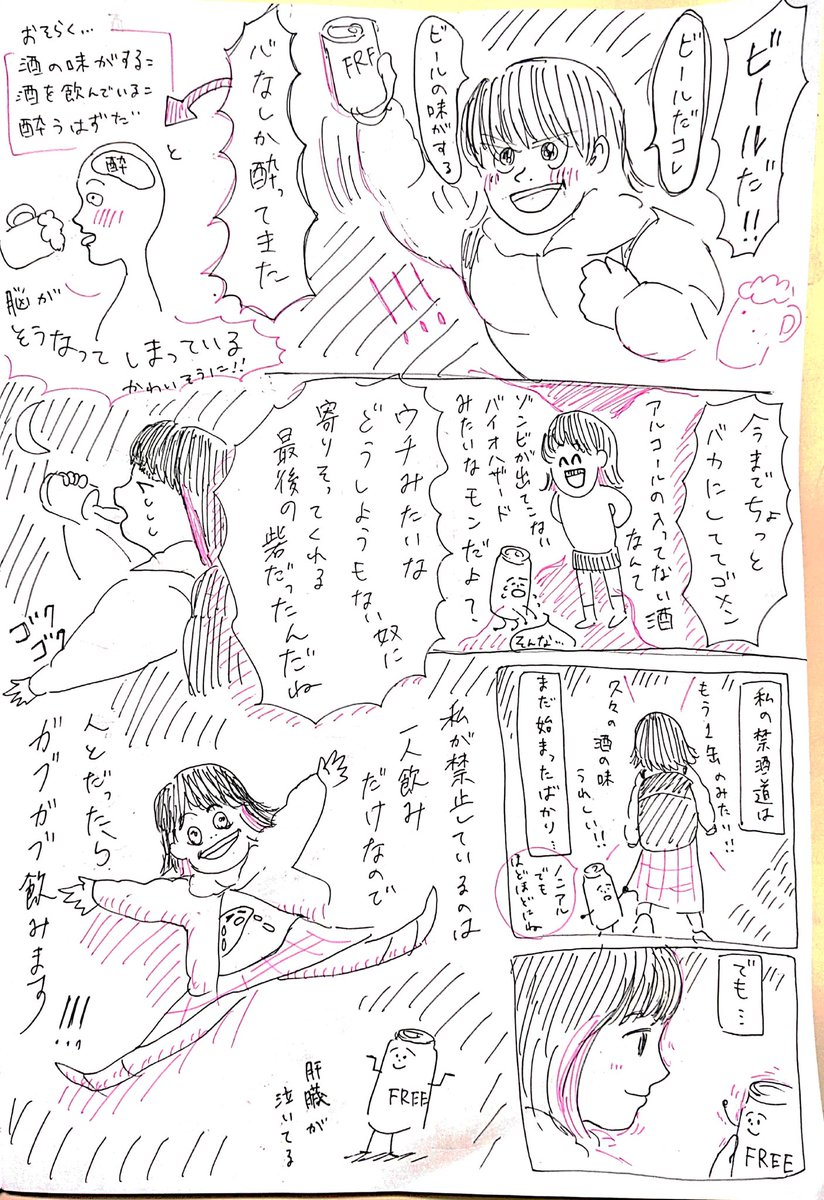 ビールだ!!
ビールだコレ
ビールの味がする
FRE
心なしか酔ってきた
おそらく…
酒の味がする=
酒を飲んでいる=
酔うはずだ
と
酔
脳が
そうなってしまっている
かわいそうに!!
今までちょっと
バカにしててゴメン
アルコールの入ってない酒
なんて
ゾンビが出てこない
バイオハザード
みたいなモンだよ?
そんな…
ウチみたいな
どうしようもない奴に
寄りそってくれる
最後の砦だったんだね
ゴク
ゴク
私の禁酒道は
もう1缶のみたい!!
久々の酒の味
うれしい!!
まだ始まったばかり…
ノンアル
でも
ほどほどにね
でも…
FREE
私が禁止しているのは
一人飲み
だけなので
人とだったら
ガブガブ飲みます!!!
FREE
肝臓が
泣いてる